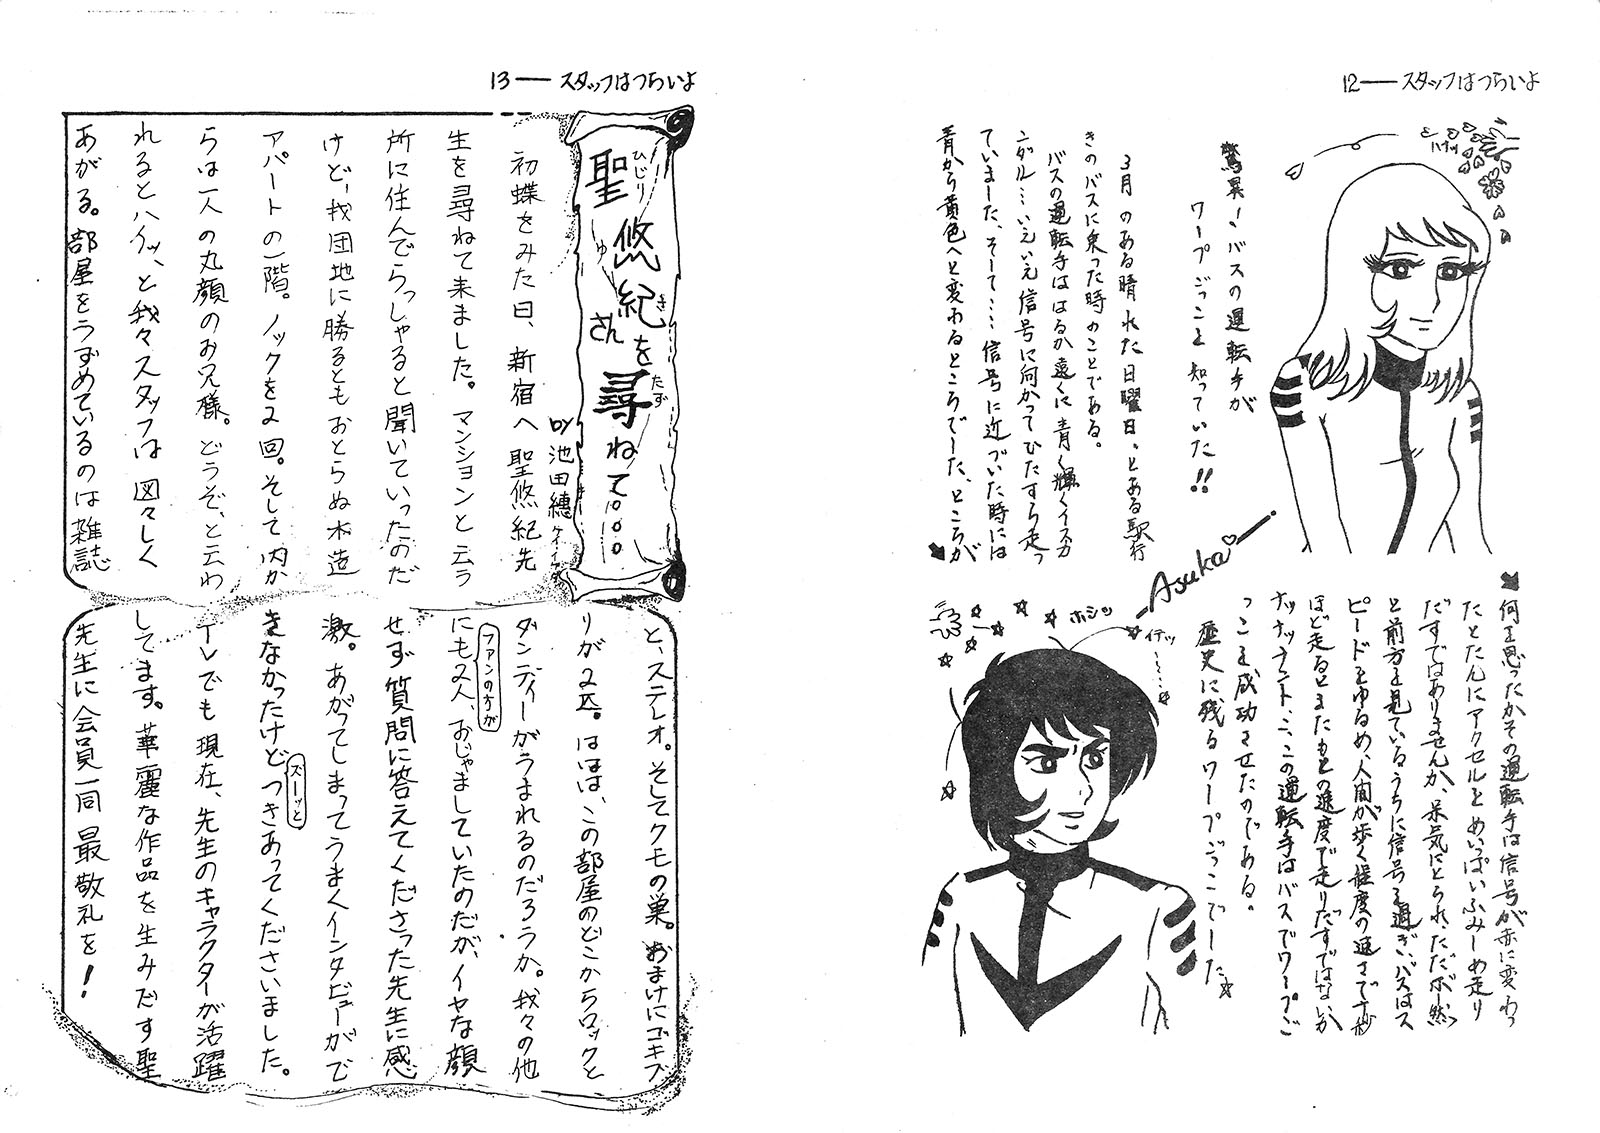 12 ── スタッフはつらいよ
驚異!バスの運転手が
ワープごっこを知っていた!!
3月のある晴れた日曜日、とある駅行
きのバスに乗った時のことである。
バスの運転手ははるか遠くに青く輝くイスカ
ンダル…いえいえ信号に向かってひたすら走っ
ていました、そして…信号に近づいた時には
青から黄色へと変わるところでした、ところが
何を思ったかその運転手は信号が赤に変わっ
たとたんにアクセルをめいっぱいふみしめ走り
だすではありませんか、呆気にとられ、ただボー然
と前方を見ているうちに信号を過ぎ、バスはス
ピードをゆるめ、人間が歩く程度の速さで十秒
ほど走るとまたもとの速度で走りだすではないか
ナッナッナント、こ、この運転手はバスでワープご
っこを成功させたのである。
歴史に残るワープごっこでした☆
Asuka♡
ハラッ
ホシッ
イテッ
13 ── スタッフはつらいよ
聖悠紀さんを尋ねて。。。
ひじり ゆき
たず
by 池田穂
初蝶をみた日、新宿へ聖悠紀先
生を尋ねて来ました。マンションと云う
所に住んでらっしゃると聞いていったのだ
けど、我団地に勝るともおとらぬ木造
アパートの一階。ノックを2回。そして内か
らは一人の丸顔のお兄様。どうぞ、と云わ
れるとハイッ、と我々スタッフは図々しく
あがる。部屋をうずめているのは雑誌
と、ステレオ。そしてクモの巣。おまけにゴキブ
リが2匹。ははは、この部屋のどこからロックと
ダンディーがうまれるのだろうか。我々の他
にもファンのケが2人、おじゃましていたのだが、イヤな顔
せず質問に答えてくださった先生に感
激。あがってしまってうまくインタビューがで
きなかったけどズーッとつきあってくださいました。
TVでも現在、先生のキャラクターが活躍
してます。華麗な作品を生みだす聖
先生に会員一同最敬礼を!